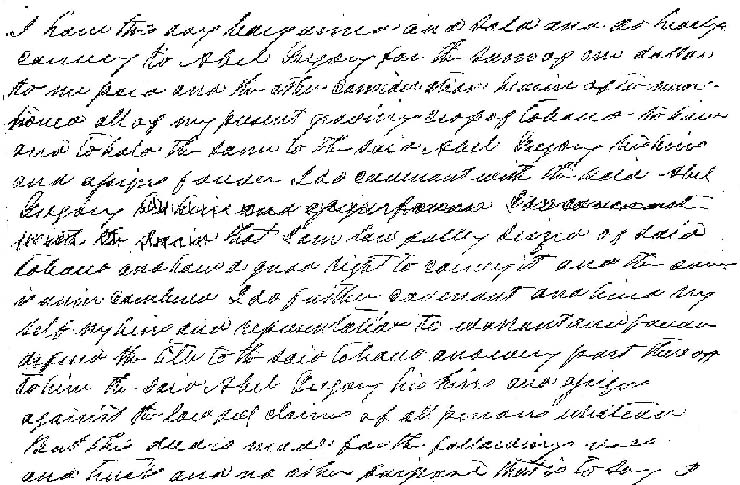 I have this day bargained and sold and do hereby
convey to Abel Gregory for the sum of one dollar
to me paid and the other consideration herein after men-
tioned all of my present growing crop of tobacco to have
and to hold the same to the said Abel Gregory his heirs
and assigns forever I do covenant with the said Abel
Gregory his heirs and assigns forever I do covenant
with the said that I am law fully seized of said
tobacco and have a good right to convey it and the same
is unincumbered I do further covenant and bind my
self my heirs and representatives to warrant and forever
defend the title to the said tobacco and every part thereof
to him the said Abel Gregory his heirs and assigns
against the lawful claims of all persons whatever
But this deed is made for the following uses
and trusts and no other purpose that is to say I